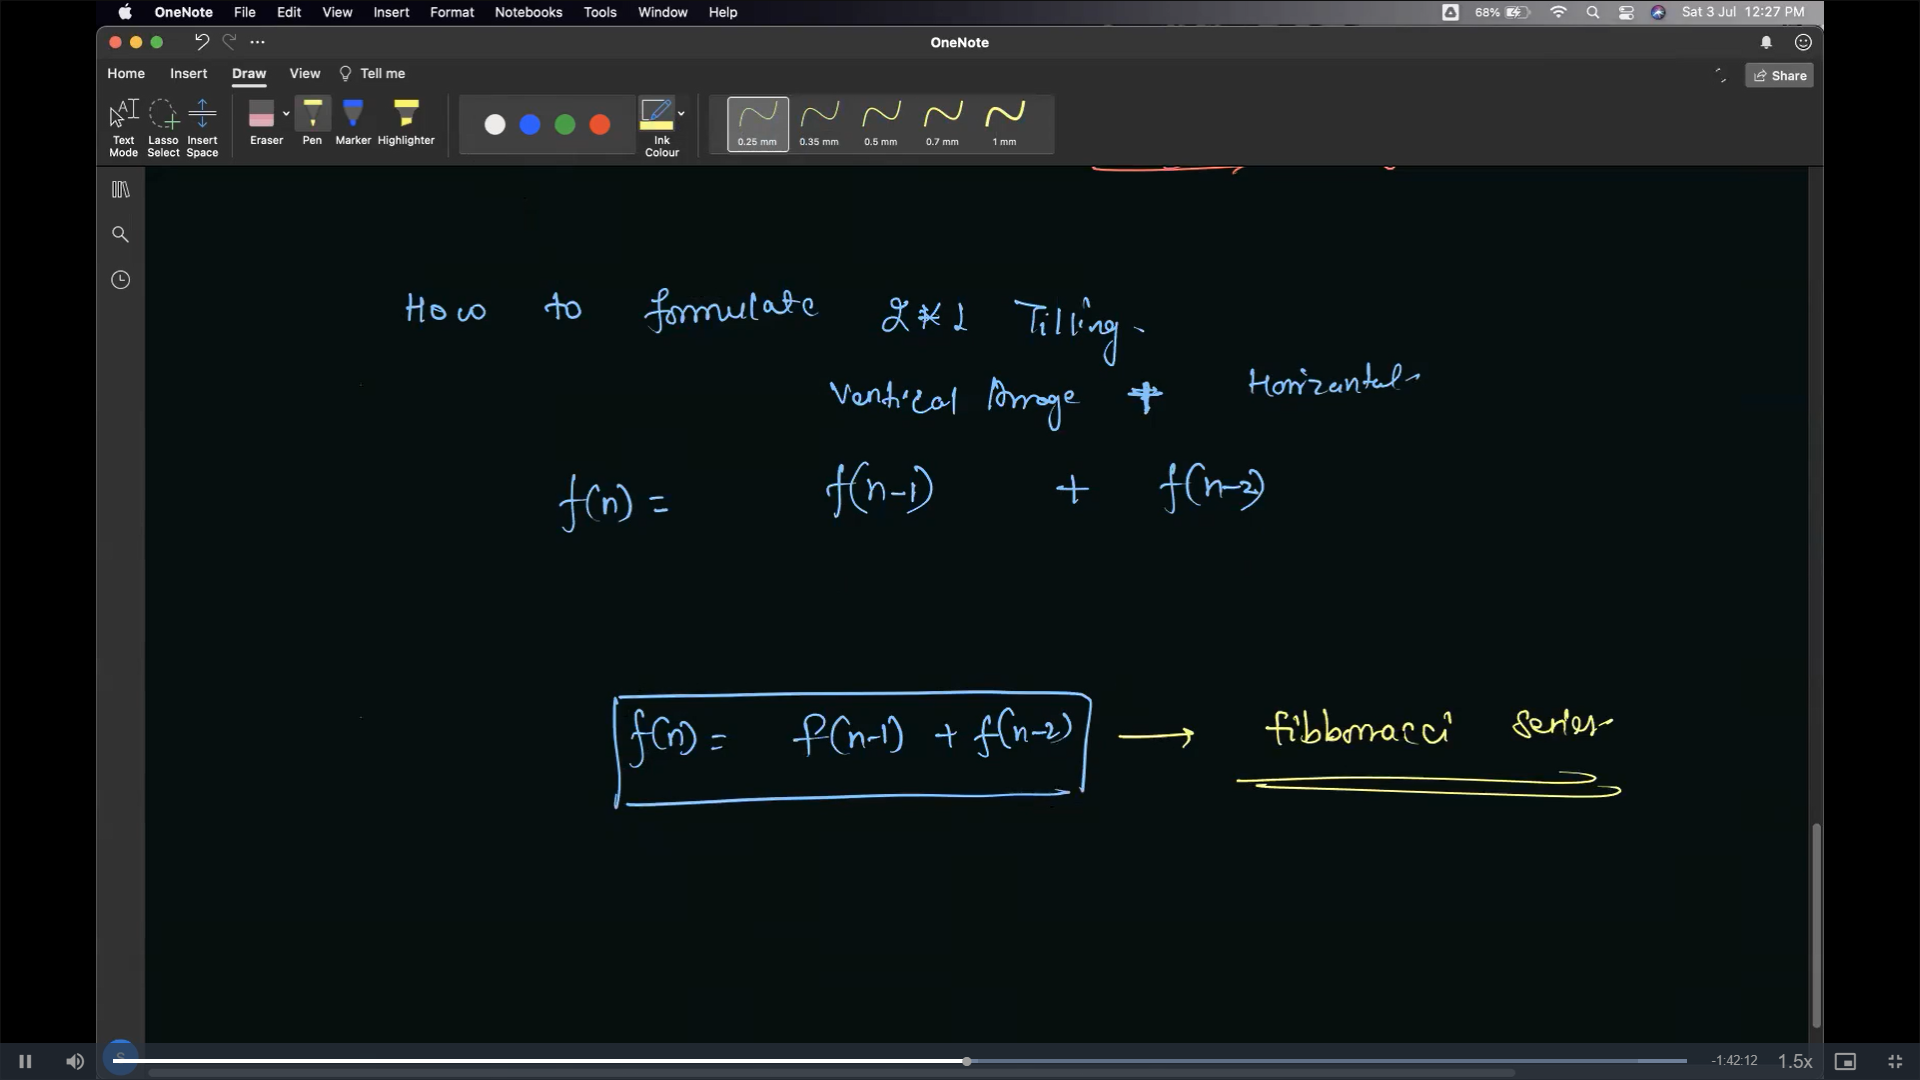 OneNote File Edit View Insert Format Notebooks Tools Window Help 68% Sat 3 Jul 12:27 PM
OneNote
Home Insert Draw View Tell me Share
Text Mode Lasso Select Insert Space Eraser Pen Marker Highlighter Ink Colour 0.25 mm 0.35 mm 0.5 mm 0.7 mm 1 mm
How to formulate 2*1 Tilling.
Vertical Arrage + Horizantal.
f(n) = f(n-1) + f(n-2)
f(n) = f(n-1) + f(n-2) → fibbonacci series.
S -1:42:12 1.5x